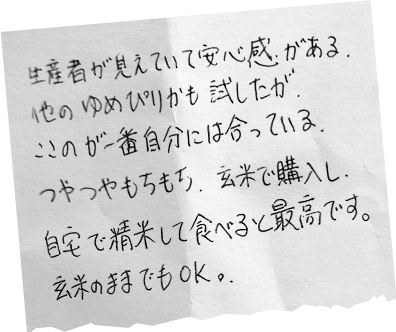 生産者が見えていて安心感がある.
他のゆめぴりかも試したが.
ここのが一番自分には合っている.
つやつやもちもち. 玄米で購入し.
自宅で精米して食べると最高です。
玄米のままでもOK。.